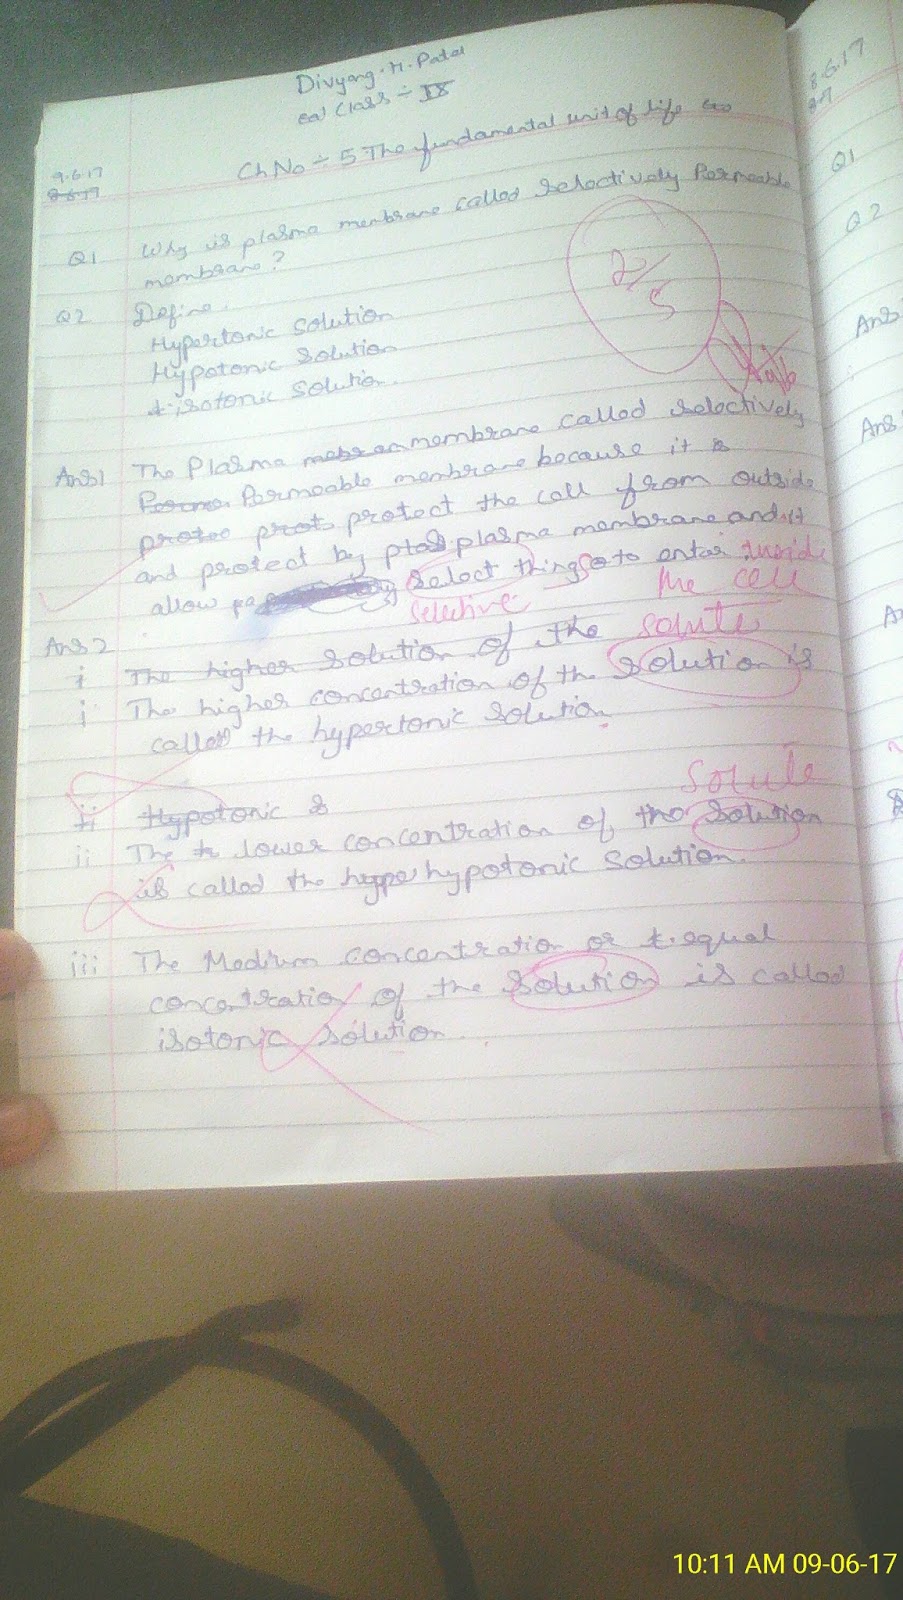 Divyang. H. Patel
Class ÷ IX
9.6.17
8.6.17
Ch No ÷ 5 The fundamental unit of life
Q1 Why is plasma membrane called selectively Permeable
membrane?
Q2 Define.
Hypertonic solution
Hypotonic solution
isotonic solution.
2/5
Ans1 The Plasma membrane called selectively
Permeable membrane because it is
protect the cell from outside
and protect by plasma membrane and it
allow select things to enter inside
selective the cell
Ans2
i The higher solution of the solute
i The higher concentration of the solution is
called the hypertonic solution
solute
ii Hypotonic s
ii The lower concentration of the solution
is called the hypotonic solution.
iii The Medium concentration or equal
concentration of the solution is called
isotonic solution.
8.6.17
Q1
Q2
Ans
Ans
10:11 AM 09-06-17